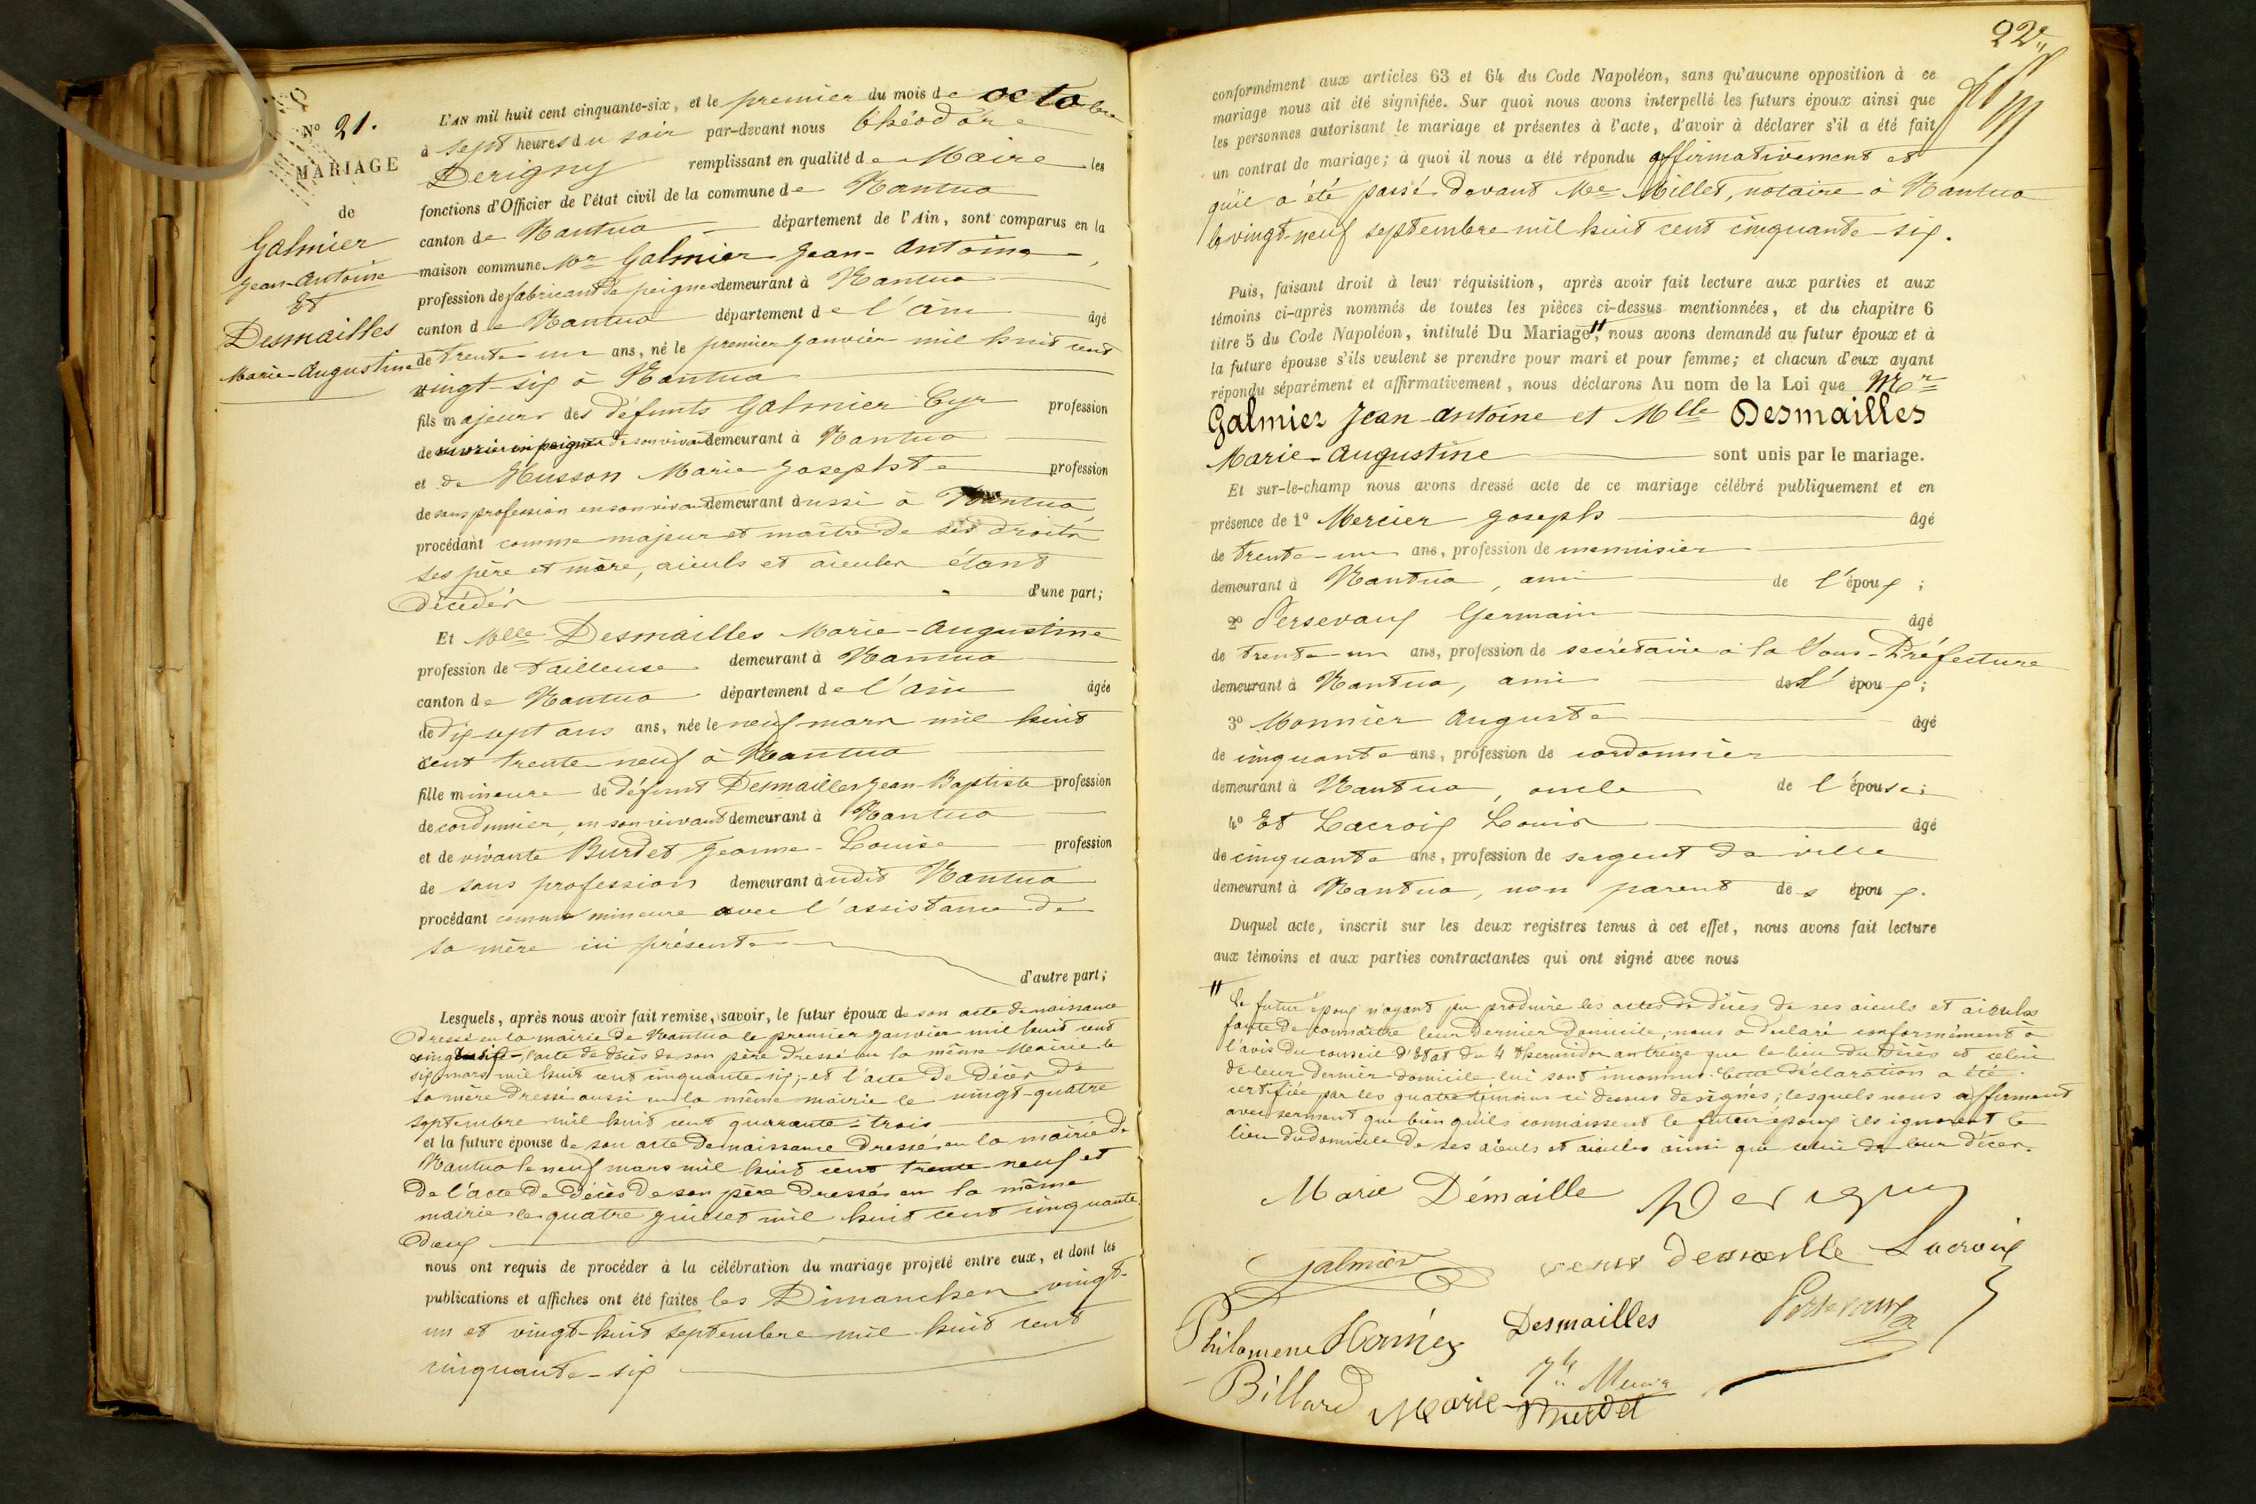 N° 21.
MARIAGE
de
Galmier
Jean-Antoine
Et
Desmailles
Marie-Augustine
L'AN mil huit cent cinquante-six, et le premier du mois de octobre
à sept heures du soir par-devant nous Théodore
Derigny remplissant en qualité de Maire les
fonctions d'Officier de l'état civil de la commune de Nantua
canton de Nantua département de l'Ain, sont comparus en la
maison commune Mr Galmier Jean-Antoine,
profession de fabricant de peignes demeurant à Nantua
canton de Nantua département de l'ain âgé
de trente un ans, né le premier janvier mil huit cent
vingt-six à Nantua
fils majeur des défunts Galmier Cyr profession
de ouvrier en peignes de son vivant demeurant à Nantua
et de Husson Marie Josephte profession
de sans profession en son vivant demeurant aussi à Nantua,
procédant comme majeur et maître de ses droits
ses père et mère, aieuls et aieules étant
décédés d'une part;
Et Mlle Desmailles Marie-Augustine
profession de tailleuse demeurant à Nantua
canton de Nantua département de l'ain âgée
de dix sept ans ans, née le neuf mars mil huit
cent trente neuf à Nantua
fille mineure de défunt Desmailles Jean-Baptiste profession
de cordonnier, en son vivant demeurant à Nantua
et de vivante Burdet Jeanne-Louise profession
de sans profession demeurant audit Nantua
procédant comme mineure avec l'assistance de
sa mère ici présente
d'autre part;
Lesquels, après nous avoir fait remise, savoir, le futur époux de son acte de naissance
dressé en la mairie de Nantua le premier janvier mil huit cent
vingt-six, l'acte de décès de son père dressé en la même Mairie le
six mars mil huit cent cinquante-six, et l'acte de décès de
sa mère dressé aussi en la même mairie le vingt-quatre
septembre mil huit cent quarante-trois
et la future épouse de son acte de naissance dressé en la mairie de
Nantua le neuf mars mil huit cent trente neuf et
de l'acte de décès de son père dressé en la même
mairie le quatre juillet mil huit cent cinquante
deux
nous ont requis de procéder à la célébration du mariage projeté entre eux, et dont les
publications et affiches ont été faites les Dimanches vingt-
un et vingt-huit septembre mil huit cent
cinquante-six
22
conformément aux articles 63 et 64 du Code Napoléon, sans qu'aucune opposition à ce
mariage nous ait été signifiée. Sur quoi nous avons interpellé les futurs époux ainsi que
les personnes autorisant le mariage et présentes à l'acte, d'avoir à déclarer s'il a été fait
un contrat de mariage; à quoi il nous a été répondu affirmativement et
qu'il a été passé devant Me Millet, notaire à Nantua
le vingt-neuf septembre mil huit cent cinquante-six.
Puis, faisant droit à leur réquisition, après avoir fait lecture aux parties et aux
témoins ci-après nommés de toutes les pièces ci-dessus mentionnées, et du chapitre 6
titre 5 du Code Napoléon, intitulé Du Mariage, " nous avons demandé au futur époux et à
la future épouse s'ils veulent se prendre pour mari et pour femme; et chacun d'eux ayant
répondu séparément et affirmativement, nous déclarons Au nom de la Loi que Mr
Galmier Jean-Antoine et Mlle Desmailles
Marie-Augustine sont unis par le mariage.
Et sur-le-champ nous avons dressé acte de ce mariage célébré publiquement et en
présence de 1° Mercier Joseph âgé
de trente-un ans, profession de menuisier
demeurant à Nantua, ami de l'époux;
2° Persevaux Germain âgé
de trente-un ans, profession de secrétaire à la Sous-Préfecture
demeurant à Nantua, ami de l'époux;
3° Monnier Auguste âgé
de cinquante ans, profession de cordonnier
demeurant à Nantua, oncle de l'épouse;
4° Et Lacroix Louis âgé
de cinquante ans, profession de sergent de ville
demeurant à Nantua, non parent des époux.
Duquel acte, inscrit sur les deux registres tenus à cet effet, nous avons fait lecture
aux témoins et aux parties contractantes qui ont signé avec nous
" Le futur époux n'ayant pu produire les actes de décès de ses aieuls et aieules
faute de connaître leur dernier domicile, nous a déclaré conformément à
l'avis du conseil d'Etat du 4 thermidor an treize que le lieu du décès et celui
de leur dernier domicile lui sont inconnus. Cette déclaration a été
certifiée par les quatre témoins ci dessus désignés; lesquels nous affirment
avec serment que bien qu'ils connaissent le futur époux ils ignorent le
lieu du domicile de ses aieuls et aieules ainsi que celui de leur décès.
Marie Démaille Derigny
Galmier Lacroix
Desmailles Persevaux
Philomene
Billard Marie Burdet